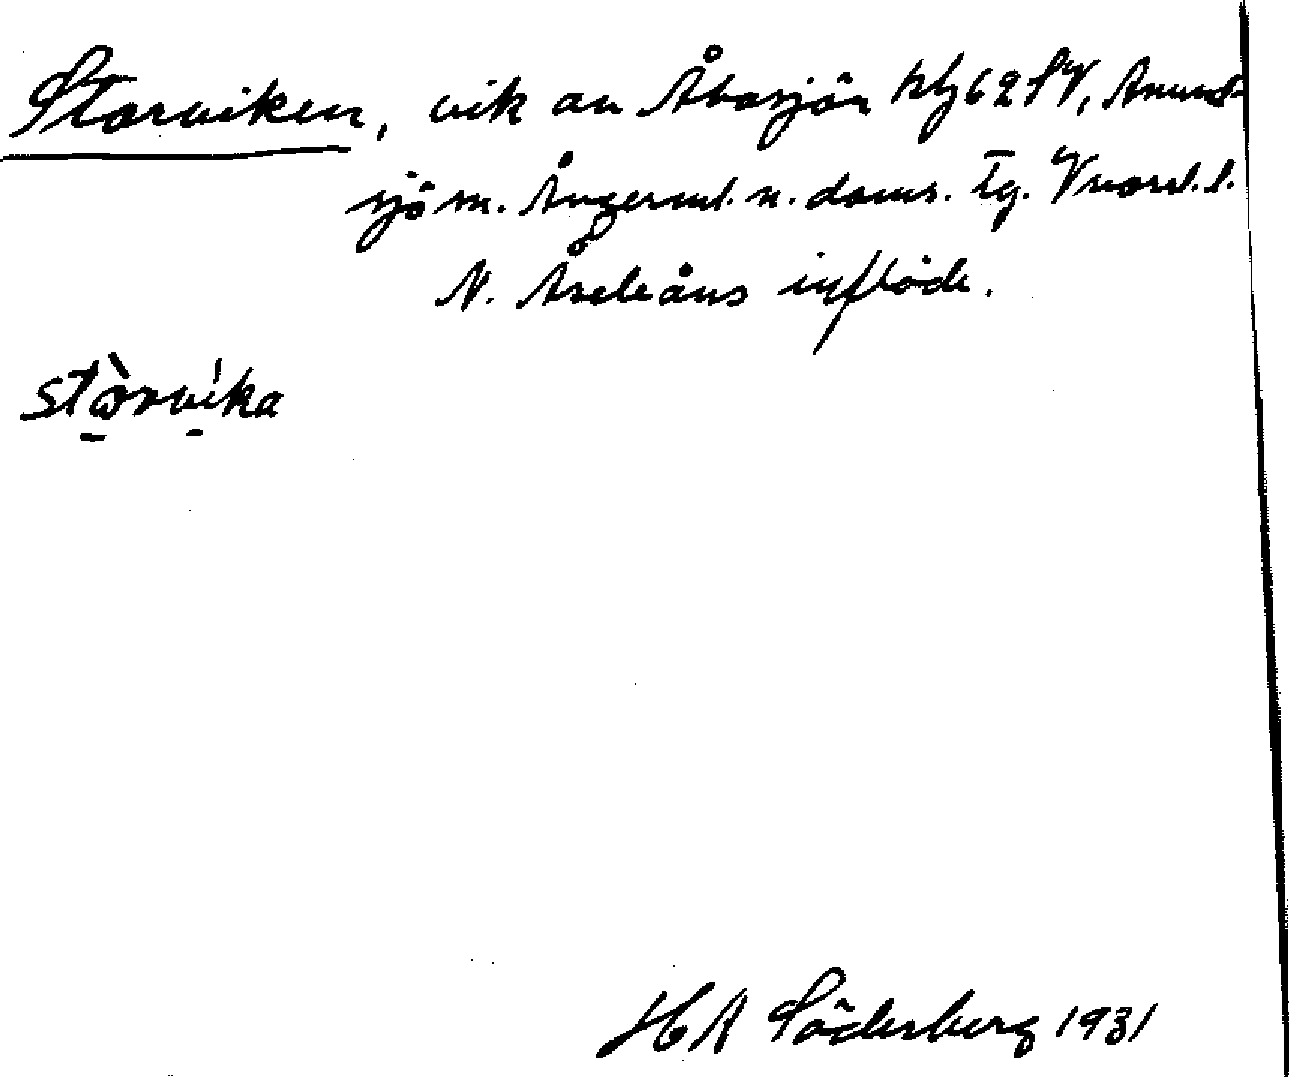 Storviken, vik av Åbosjön blg 62 SV, Anund-
sjö sn. Ångerml. n. doms. Tg. V nord. l.
N. Åseleåns inflöde.
stòrvika
HA Söderberg 1931